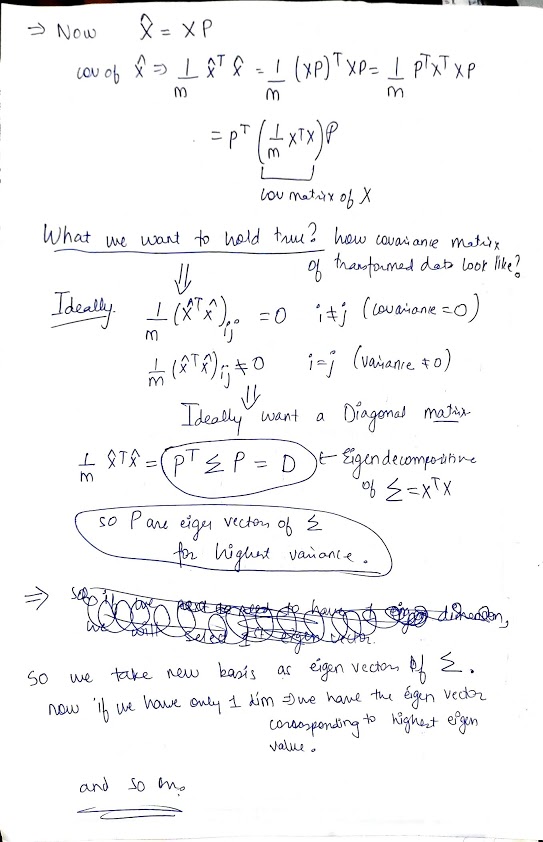 ⇒ Now X̂ = XP
cov of X̂ ⇒ 1/m X̂ᵀX̂ = 1/m (XP)ᵀ XP = 1/m PᵀXᵀXP
= Pᵀ (1/m XᵀX) P
cov matrix of X
What we want to hold true? how covariance matrix
of transformed data look like?
⇓
Ideally. 1/m (X̂ᵀX̂)ᵢⱼ = 0 i≠j (covariance = 0)
1/m (X̂ᵀX̂)ᵢⱼ ≠ 0 i=j (variance ≠ 0)
⇓
Ideally want a Diagonal matrix
1/m X̂ᵀX̂ = PᵀΣP = D ← Eigendecomposition
of Σ = XᵀX
so P are eigen vectors of Σ
for highest variance.
⇒ dimension,
So we take new basis as eigen vectors of Σ.
now if we have only 1 dim ⇒ we have the eigen vector
corresponding to highest eigen
value.
and so on.